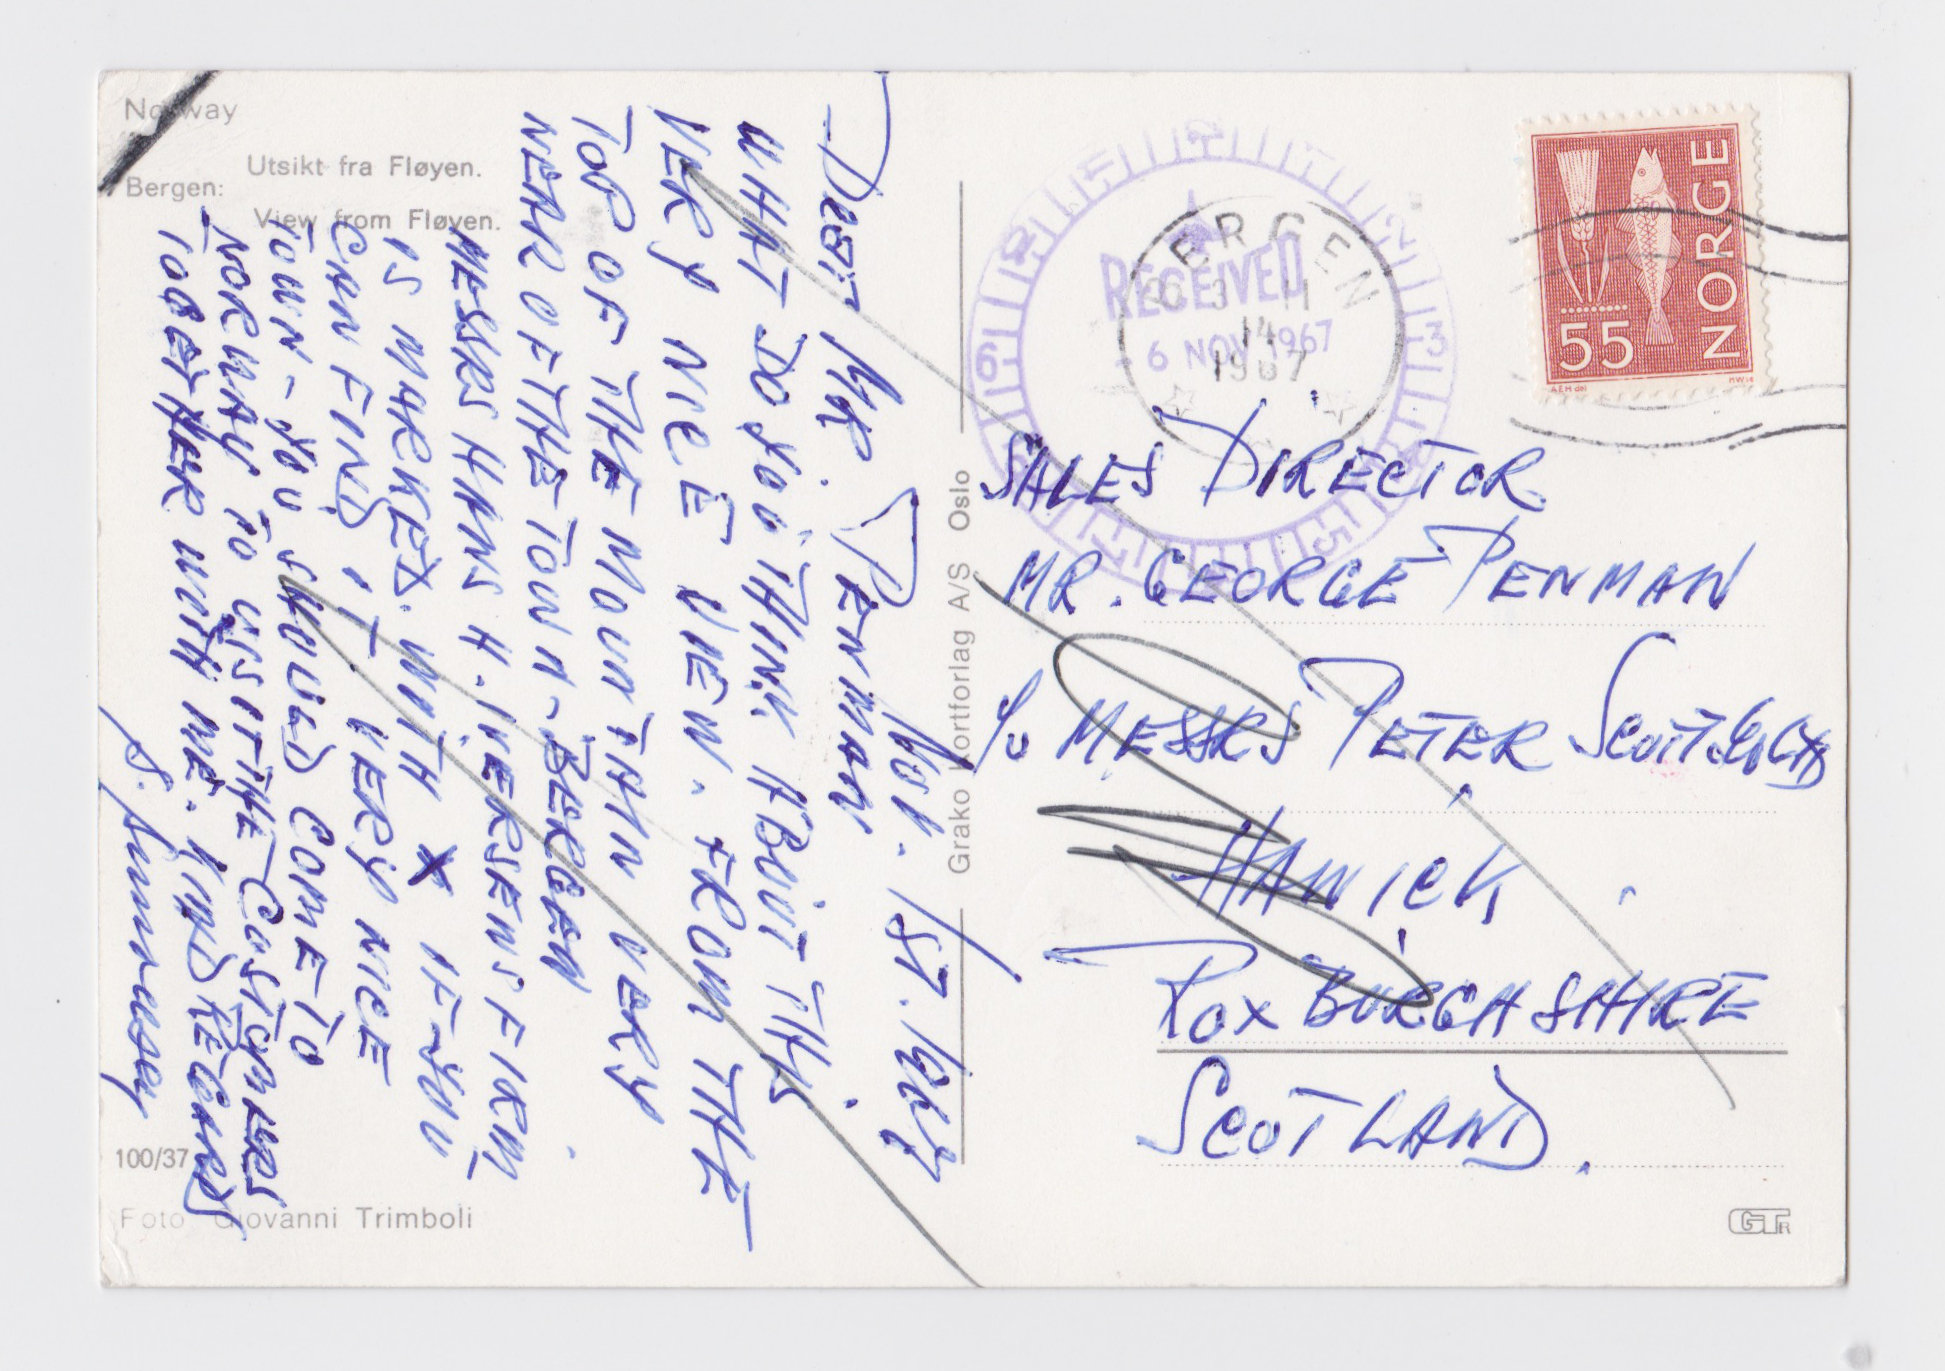 Norway
Bergen:
Utsikt fra Fløyen.
View from Fløyen.
NOV. 1/ST. 1967
DEAR MR. PENMAN
WHAT DO YOU THINK ABOUT THIS
VERY NICE VIEW. FROM THE
TOP OF THE MOUNTAIN VERY
NEAR OF THE TOWN - BERGEN.
MESSRS HANS H. IVERSENS FIRM
IS MARKET. WITH X IF YOU
CAN FIND IT VERY NICE
TOWN - YOU SHOULD COME TO
NORWAY TO VISIT THE COSTOMERS
TOGETHER WITH ME. KIND REGARDS
S.
100/37
Foto Giovanni Trimboli
Grako Kortforlag A/S Oslo
RECEIVED
6 NOV 1967
BERGEN
3 11
14
1967
NORGE
55
SALES DIRECTOR
MR. GEORGE PENMAN
c/o MESSRS PETER SCOTT & Co LTD
HAWICK
ROXBURGHSHIRE
SCOTLAND.
GTR